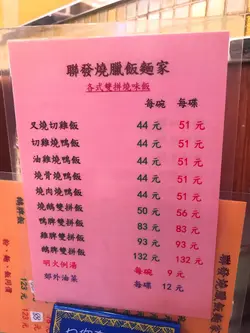 聯發燒臘飯麵家
各式雙拼燒味飯
每碗 每碟
叉燒切雞飯 44 元 51 元
切雞燒鴨飯 44 元 51 元
油雞燒鴨飯 44 元 51 元
燒骨燒鴨飯 44 元 51 元
燒肉燒鴨飯 44 元 51 元
燒鵝雙拼飯 50 元 56 元
鴨牌雙拼飯 83 元 93 元
雞牌雙拼飯 83 元 93 元
鵝牌雙拼飯 132 元 132 元
明火例湯 每碗 9 元
郊外油菜 每碟 12 元
鵝牌飯
123 元
聯發燒臘飯